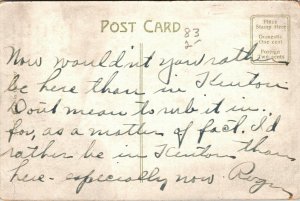 POST CARD
83
2
Place
Stamp Here
Domestic
One cent
Foreign
Two cents
Now wouldn't you rather
be here than in Kenton
Dont mean to rub it in.
for, as a matter of fact. I'd
rather be in Kenton than
here - especially now. Roger